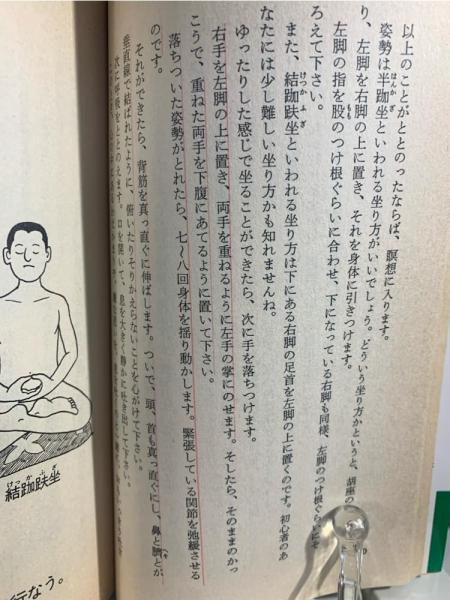 以上のことがととのったならば、瞑想に入ります。
姿勢は半跏坐といわれる坐り方がいいでしょう。どういう坐り方かというと、胡座の
り、左脚を右脚の上に置き、それを身体に引きつけます。
左脚の指を股のつけ根ぐらいに合わせ、下になっている右脚も同様、左脚のつけ根ぐらいにそ
ろえて下さい。
また、結跏趺坐といわれる坐り方は下にある右脚の足首を左脚の上に置くのです。初心者のあ
なたには少し難しい坐り方かも知れませんね。
ゆったりした感じで坐ることができたら、次に手を落ちつけます。
右手を左脚の上に置き、両手を重ねるように左手の掌にのせます。そしたら、そのままのかっ
こうで、重ねた両手を下腹にあてるように置いて下さい。
落ちついた姿勢がとれたら、七〜八回身体を揺り動かします。緊張している関節を弛緩させる
のです。
それができたら、背筋を真っ直ぐに伸ばします。ついで、頭、首も真っ直ぐにし、鼻と臍とが
垂直線で結ばれたように、俯いたりそりかえらないことを心がけて下さい。
次に呼吸をととのえます。口を開いて、息を大きく静かに吐き出して下さい。
結跏趺坐
行なう。